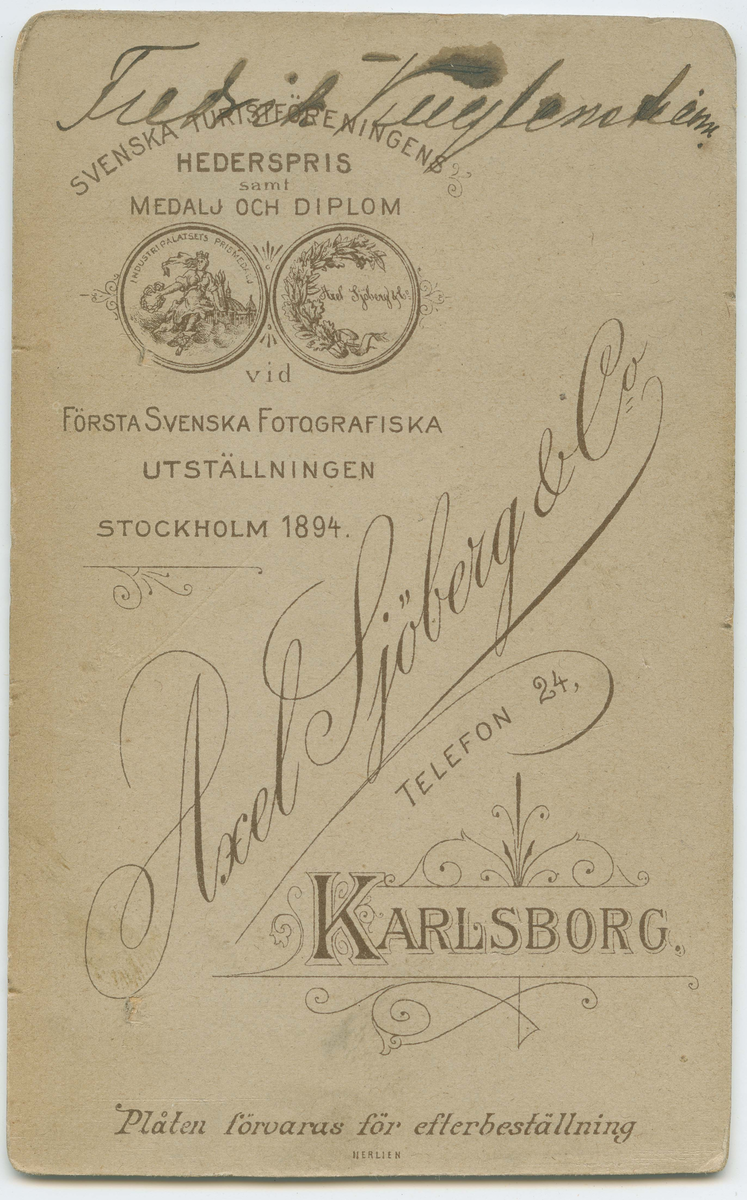 Fredrik
SVENSKA TURISTFÖRENINGENS
HEDERSPRIS
samt
MEDALJ OCH DIPLOM
INDUSTRIPALATSETS PRISMEDALJ
Axel Sjöberg & Co
vid
FÖRSTA SVENSKA FOTOGRAFISKA
UTSTÄLLNINGEN
STOCKHOLM 1894.
Axel Sjöberg & Co
TELEFON 24,
KARLSBORG.
Plåten förvaras för efterbeställning
HERLIEN